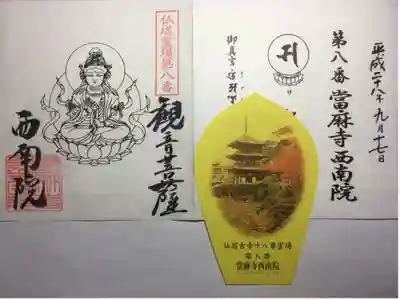 平成二十八年九月十七日
第八番 當麻寺西南院
御真言
仏塔霊場第八番
観音菩薩
西南院
仏塔古寺十八尊霊場
第八番
當麻寺西南院